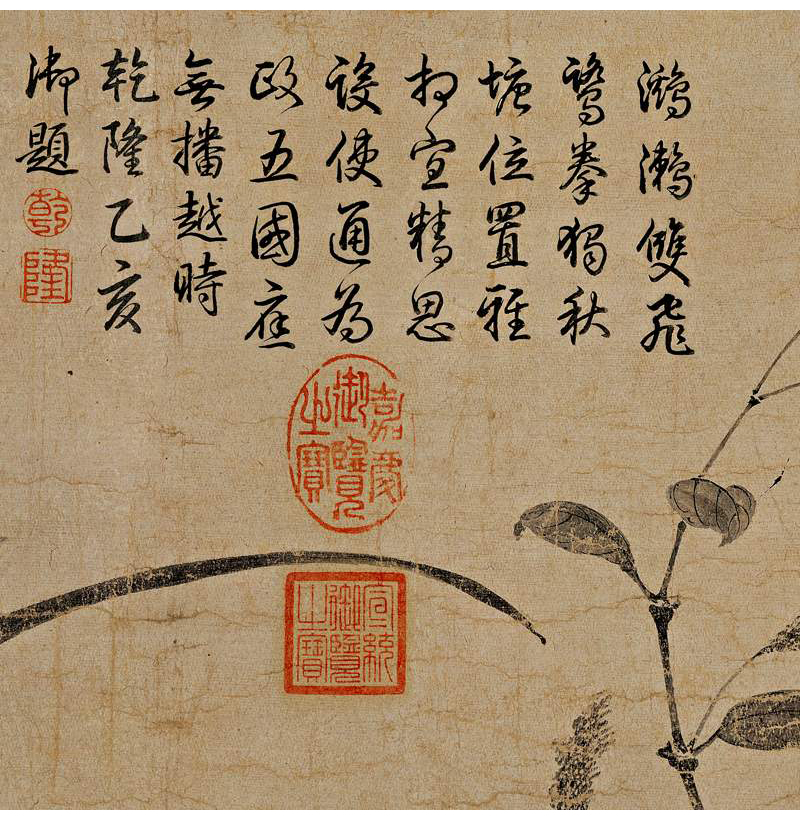 鸂鶒雙飛
鷺拳獨秋
塘位置雅
相宜精思
設使通為
政五國應
無播越時
乾隆乙亥
御題
乾
隆
嘉慶
御覽
之寶
宣統
御覽
之寶